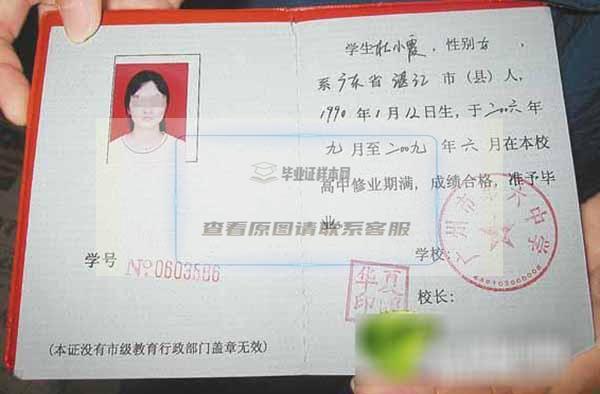 学生杜小霞,性别女,
系广东省湛江市(县)人,
1990年1月12日生,于二00六年
九月至二00九年六月在本校
高中修业期满,成绩合格,准予毕
业
毕业证样本网
查看原图请联系客服
学校:
学号 No 0603586
校长:
华夏
印
(本证没有市级教育行政部门盖章无效)